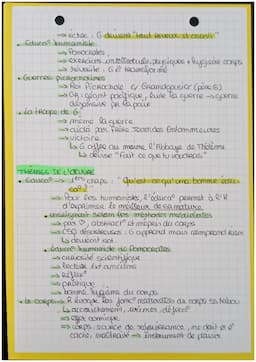 → échec : G devient "tout rêveux et assoti"
• Éduca° humaniste
→ Ponocrates
→ exercices intellectuels, physiques + hygiène corps
→ réussite : G est transformé
• Guerres picrocholines
→ Roi Picrochole ≠ Grandgousier (père G)
→ GR : géant pacifique, évite la guerre → guerre
défensive pr la paix
• La troupe de G
→ mène la guerre
→ aidé par Frère Jean des Entommeures
→ victoire
↳ G offre au moine l'Abbaye de Thélème
↳ devise "Fait ce que tu voudras"
THÈMES DE L'OEUVRE
• Éduca° → 1ers chaps : "Qu'est-ce qu'une bonne édu-
ca° ?"
→ Pour les humanistes, l'éduca° permet à l'H
d'exprimer le meilleur de sa nature.
• enseignant selon les méthodes médiévales
→ par ♡, abstrait et mépris du corps
→ CSQ désastreuses : G apprend mais comprend rien
↳ devient sot.
• Éduca° humaniste de Ponocrates
→ curiosité scientifique
→ lecture
→ réflex°
→ pratique
→ bonne hygiène du corps
• Le corps → R évoque les fonc° naturelles du corps
↳ accouchement, urines, déféc°
↳ effet comique
↳ corps : source de réjouissance, ne doit ê
caché, maltraité → instrument de plaisir.